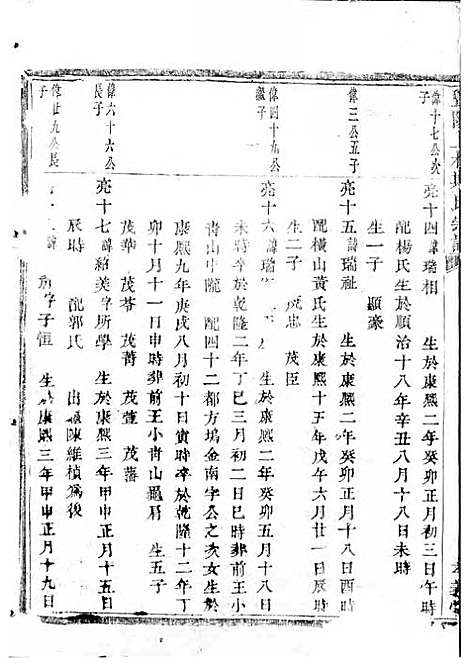 偉十七公次子
亮十四諱瑞相 生於康熙二年癸卯正月初三日午時
配楊氏生於順治十八年辛丑八月十八日未時
生一子 顯豪
偉三公五子
亮十五諱瑞祉 生於康熙二年癸卯正月十八日酉時
配橫山黃氏生於康熙十五年戊午六月廿一日辰時
生二子 茂忠 茂臣
偉四十九公繼子
亮十六諱瑞 生於康熙二年癸卯五月十八日
未時卒於乾隆二年丁巳三月初二日巳時葬前王小
青山中隴 配四十二都方塢金南字公之次女生於
康熙九年庚戌八月初十日寅時卒於乾隆十二年丁
卯十月十一日申時葬前王小青山 眉 生五子
茂華 茂苓 茂菁 茂萱 茂藩
偉六十六公長子
亮十七諱紹美字所學 生於康熙三年甲申正月十五日
辰時 配郭氏 由 陳維楨為後
偉廿九公長子
諱 字子恒 生 康熙三年甲申正月十九日